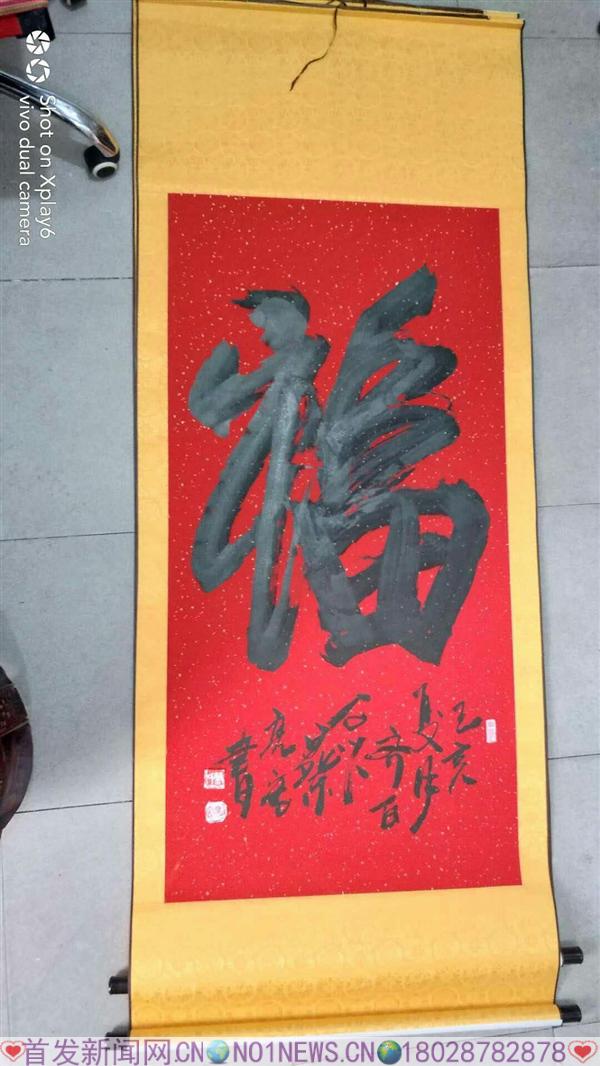 Shot on Xplay6
vivo dual camera
福
己亥
夏月
齐百
石
書
首发新闻网.CN NO1NEWS.CN 18028782878